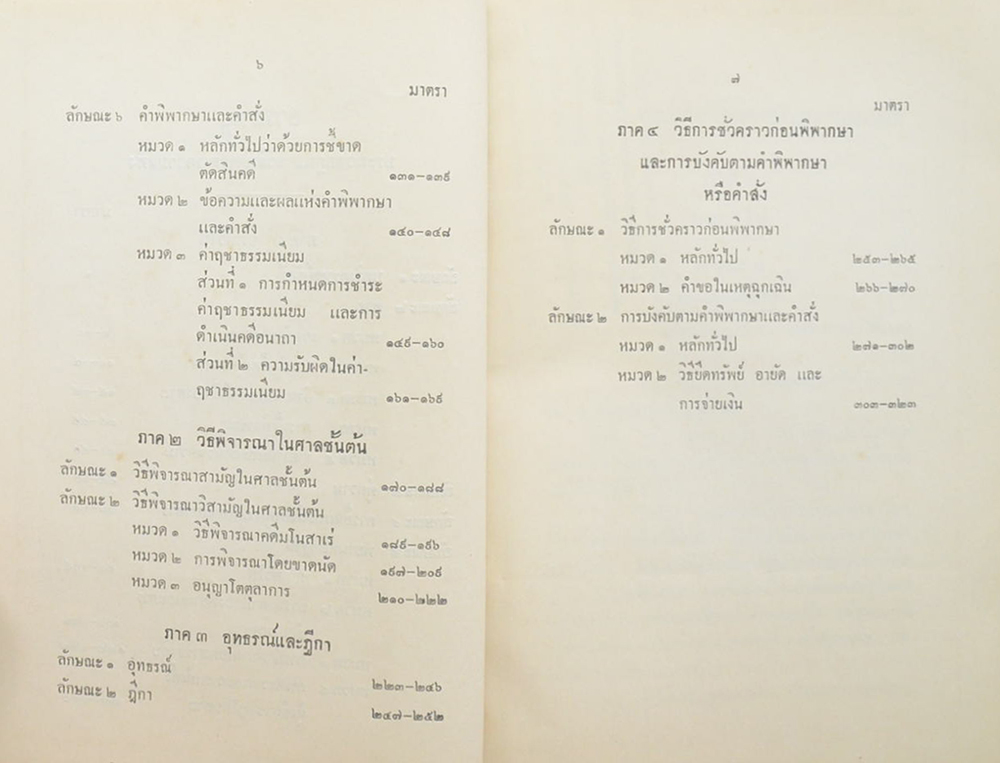 ๖
มาตรา
ลักษณะ ๖ คำพิพากษาและคำสั่ง
หมวด ๑ หลักทั่วไปว่าด้วยการชี้ขาด
ตัดสินคดี ๑๓๑-๑๓๙
หมวด ๒ ข้อความและผลแห่งคำพิพากษา
และคำสั่ง ๑๔๐-๑๔๘
หมวด ๓ ค่าฤชาธรรมเนียม
ส่วนที่ ๑ การกำหนดการชำระ
ค่าฤชาธรรมเนียม และการ
ดำเนินคดีอนาถา ๑๔๙-๑๖๐
ส่วนที่ ๒ ความรับผิดในค่า-
ฤชาธรรมเนียม ๑๖๑-๑๖๙
ภาค ๒ วิธีพิจารณาในศาลชั้นต้น
ลักษณะ ๑ วิธีพิจารณาสามัญในศาลชั้นต้น ๑๗๐-๑๘๘
ลักษณะ ๒ วิธีพิจารณาวิสามัญในศาลชั้นต้น
หมวด ๑ วิธีพิจารณาคดีมโนสาเร่ ๑๘๙-๑๙๖
หมวด ๒ การพิจารณาโดยขาดนัด ๑๙๗-๒๐๙
หมวด ๓ อนุญาโตตุลาการ ๒๑๐-๒๒๒
ภาค ๓ อุทธรณ์และฎีกา
ลักษณะ ๑ อุทธรณ์ ๒๒๓-๒๔๖
ลักษณะ ๒ ฎีกา ๒๔๗-๒๕๒
๗
มาตรา
ภาค ๔ วิธีการชั่วคราวก่อนพิพากษา
และการบังคับตามคำพิพากษา
หรือคำสั่ง
ลักษณะ ๑ วิธีการชั่วคราวก่อนพิพากษา
หมวด ๑ หลักทั่วไป ๒๕๓-๒๖๕
หมวด ๒ คำขอในเหตุฉุกเฉิน ๒๖๖-๒๗๐
ลักษณะ ๒ การบังคับตามคำพิพากษาและคำสั่ง
หมวด ๑ หลักทั่วไป ๒๗๑-๓๐๒
หมวด ๒ วิธียึดทรัพย์ อายัด และ
การจ่ายเงิน ๓๐๓-๓๒๓